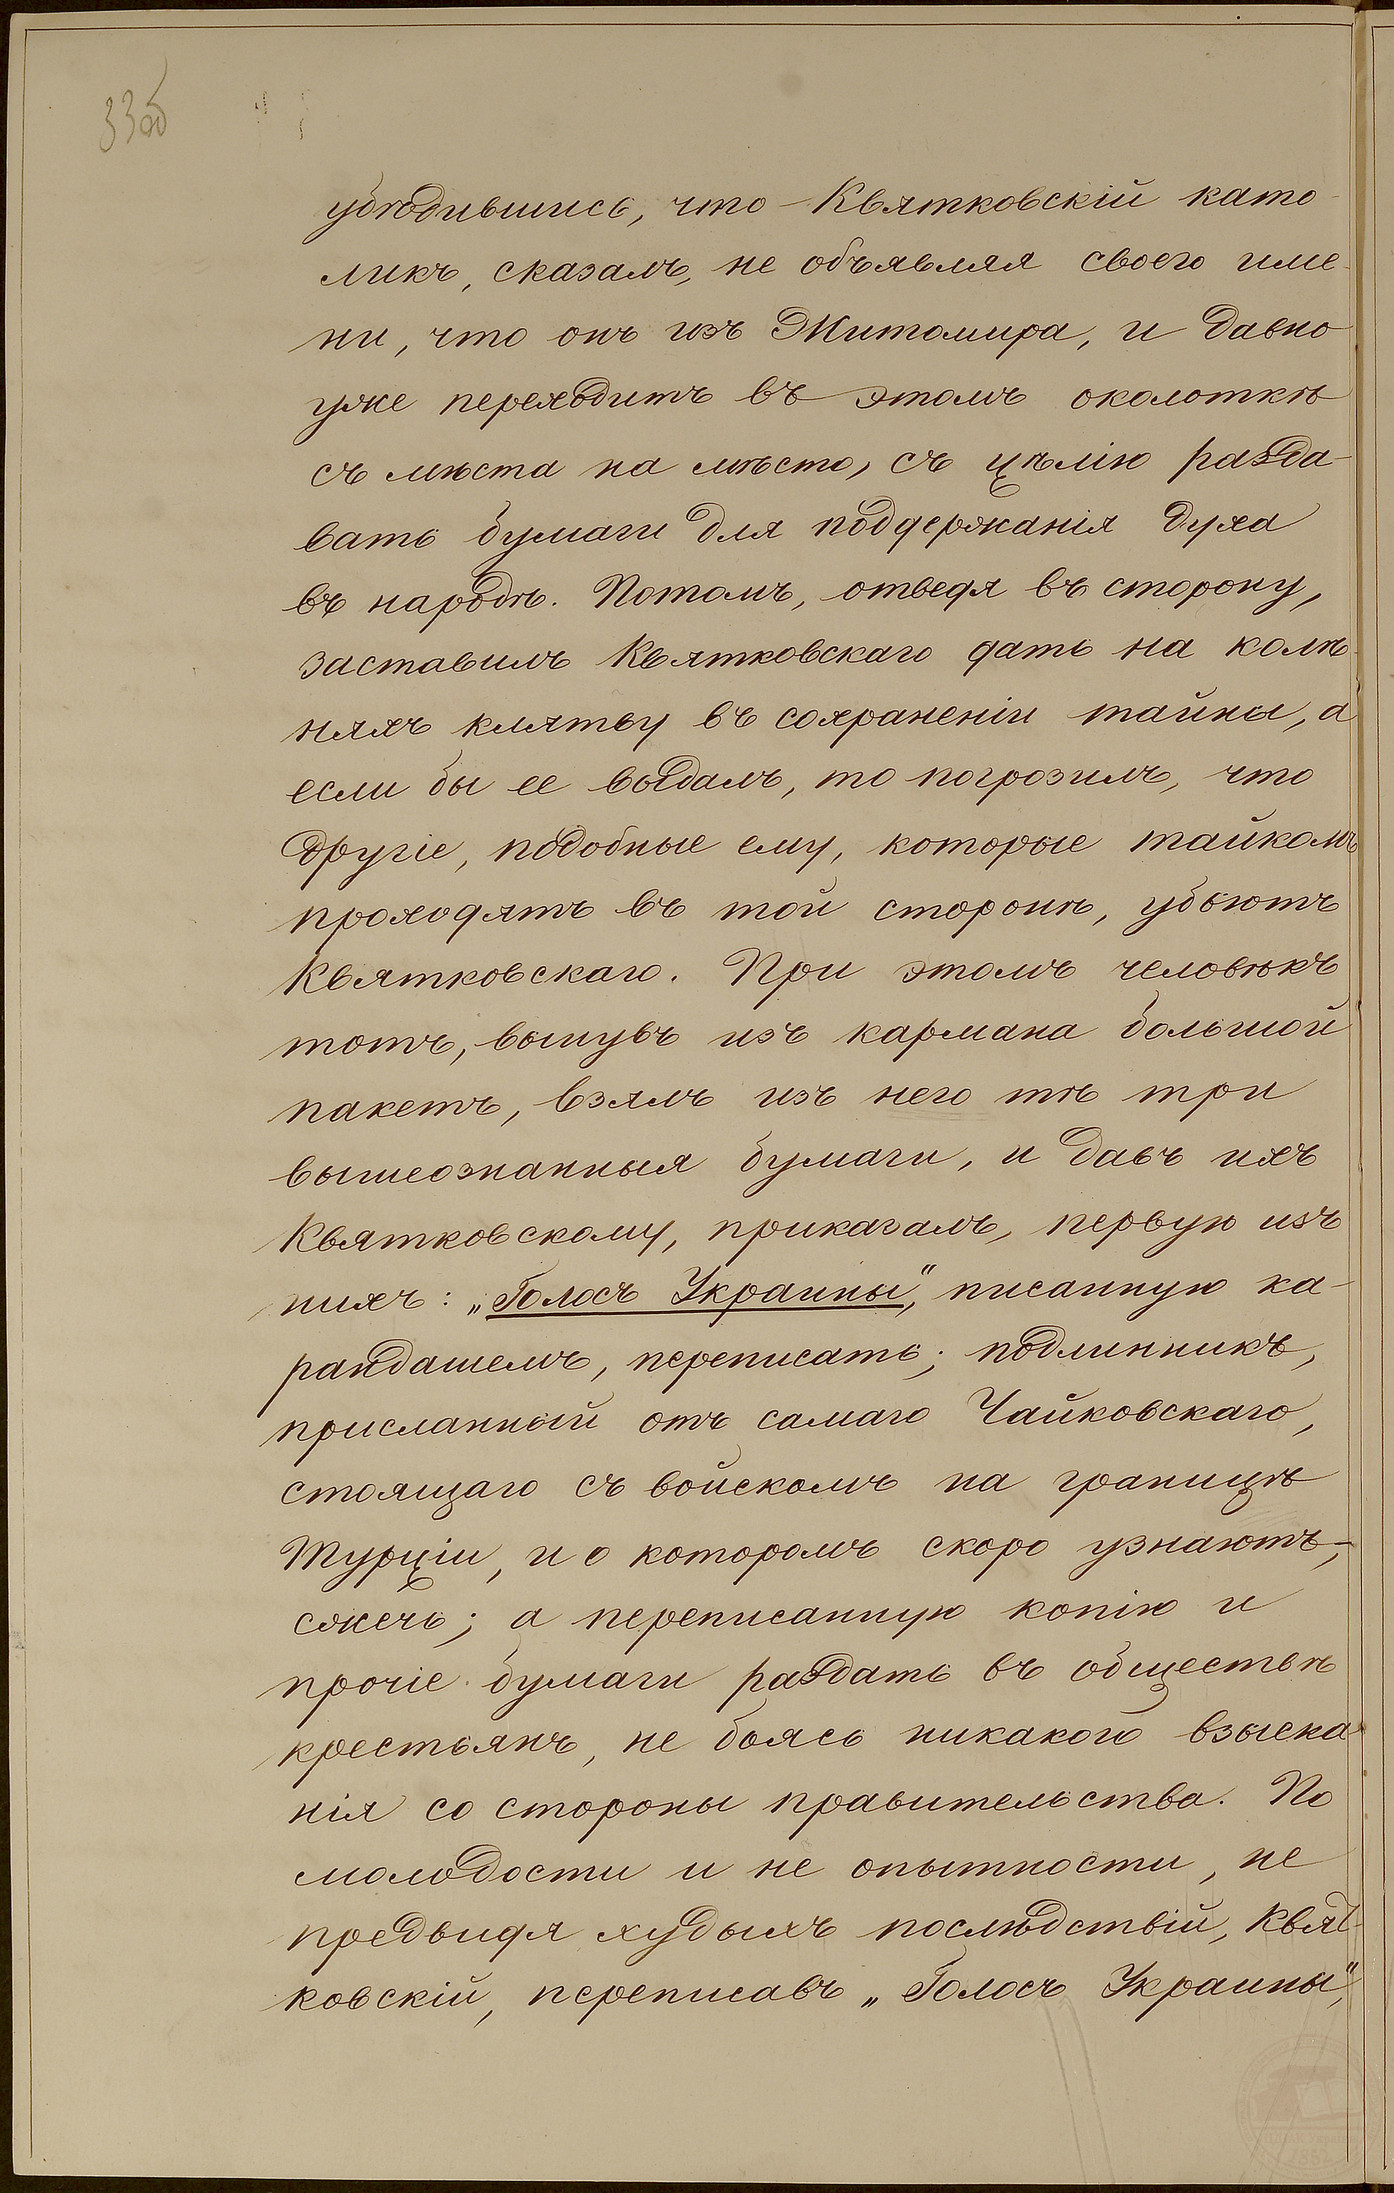 33об
убѣдившись, что Квятковскій като-
ликъ, сказалъ, не объявляя своего име-
ни, что онъ изъ Житомира, и давно
уже переходитъ въ этомъ околоткѣ
съ мѣста на мѣсто, съ цѣлію разда-
вать бумаги для поддержанія духа
въ народѣ. Потомъ, отведя въ сторону,
заставилъ Квятковскаго дать на колѣ-
няхъ клятву въ сохраненіи тайны, а
если бы ее выдалъ, то погрозилъ, что
другіе, подобные ему, которые тайкомъ
проходятъ въ той сторонѣ, убьютъ
Квятковскаго. При этомъ человѣкъ
тотъ, вынувъ изъ кармана большой
пакетъ, взялъ изъ него тѣ три
вышеознанныя бумаги, и давъ ихъ
Квятковскому, приказалъ, первую изъ
нихъ: „Голосъ Украины", писанную ка-
рандашемъ, переписать; подлинникъ,
присланный отъ самаго Чайковскаго,
стоящаго съ войскомъ на границѣ
Турціи, и о которомъ скоро узнаютъ,-
сжечь; а переписанную копію и
прочіе бумаги раздать въ обществѣ
крестьянъ, не боясь никакого взыска-
нія со стороны правительства. По
молодости и не опытности, не
предвидя худыхъ послѣдствій, Квят-
ковскій, переписавъ „Голосъ Украины",